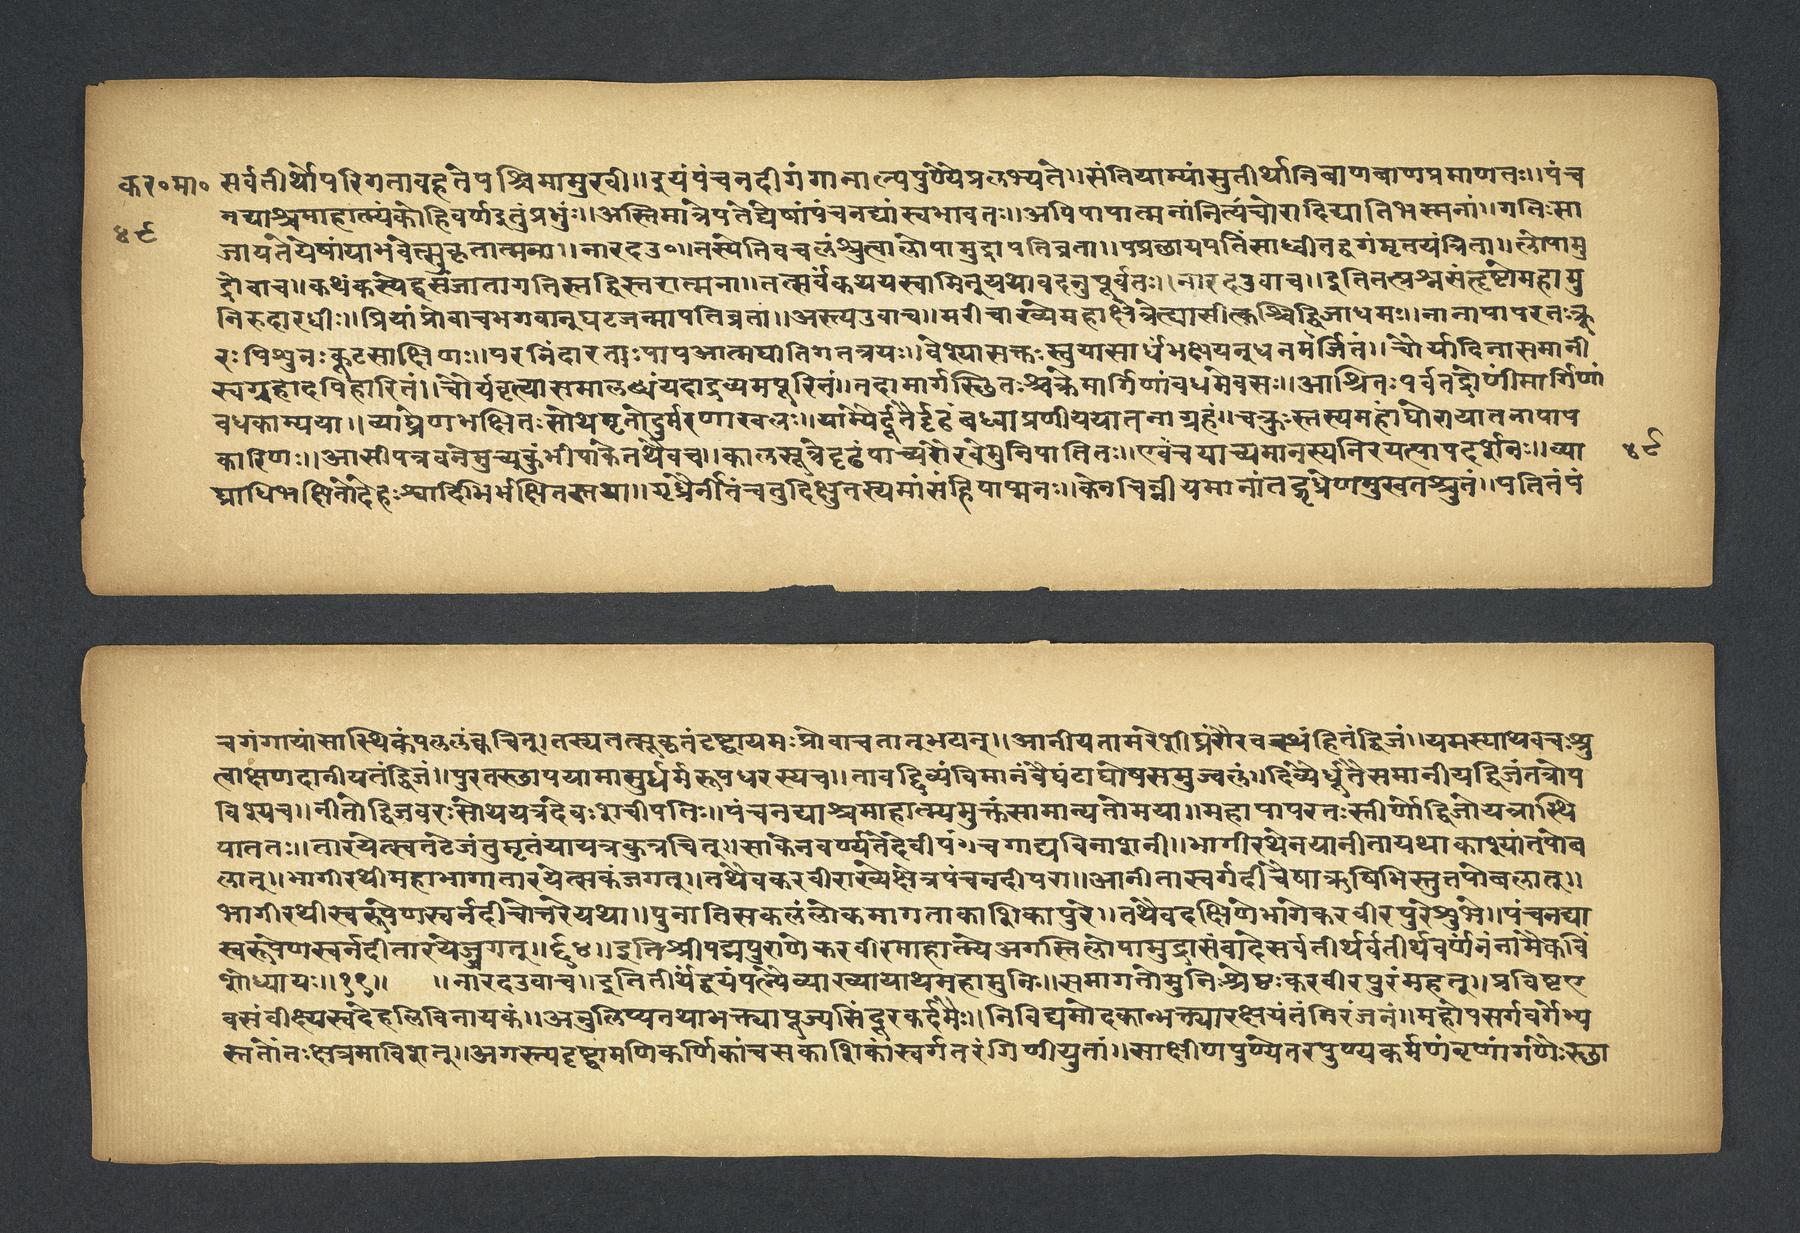 कर॰मा॰ सर्वतीर्थोपरिगतावहतेपश्चिमामुखी॥इयंपंचनदीगंगानाल्पपुण्येप्रलभ्यते॥संतियाम्यांसुतीर्थानिबाणबाणप्रमाणतः॥पंच
४९ नद्याश्चमाहात्म्यंकोहिवर्णइतुंप्रभुंः॥अस्तिमात्रेपतेद्येषांपंचनद्यांस्वभावतः॥अपिपापात्मनांनित्यंचोरादिद्यातिभस्मनां॥गतिःसा
जायतेयेषांयाभवेत्सुकृतात्मना॥नारदउ॰॥तस्येतिवचलंश्रुत्वालोपामुद्रापतिव्रता॥पप्रछाथपतिंसाध्वीतद्वगंमृतयंत्रिता॥लोपामु
द्रोवाच॥कथंकस्येहसंजातागतिस्तद्विस्तरात्मना॥तत्सर्वंकथयस्वामिन्यथावदनुपूर्वतः॥नारदउवाच॥इतितत्प्रश्नसंतृष्टोमहामु
निरुदारधीः॥प्रियांप्रोवाचभगवान्घटजन्मापतिव्रतां॥अस्त्यउवाच॥मरीचाख्येमहाक्षेत्रेत्द्यासीत्कश्चिद्विजाधमः॥नानापापरतःक्रू
रःपिशुनःकूटसाक्षिणः॥परनिंदारताःपापआत्मघातिगतत्रयः॥वेश्यासक्तःस्तुयासार्धंभक्षयन्धनमर्जितं॥चौर्यादिनासमानी
स्वगृहादविहारितं॥चौर्यवृत्त्यासमालण्धंयदाद्रव्यमपूरितं॥तदामार्गस्छितःश्चक्रेमार्गिणांवधमेवसः॥आश्रितःपर्वतद्रोणींमार्गिणां
वधकाम्यया॥व्याघ्रेणभक्षितःसोथमृतोदुर्मरणात्खलः॥याम्येर्दूतैर्दृढंबध्वाप्रणीययातनागृहं॥चक्रुःस्तस्यमहांघोरायातनापाप
कारिणः॥आसीपत्रवनेमुच्यकुंभीपाकेतथैवच॥कालसूत्रेदृढंपाच्यरोरवेमुनिपातितः॥एवंचयाच्यमानस्यनिरयत्पापदर्शनः॥व्या ४९
घ्राधिभक्षितोदेहःश्वादिभिर्भक्षितस्तया॥गृध्रैर्नीतंचतुदिक्षुतस्यमांसंहिपाप्मनः॥केनचिन्नीयमानांतद्गृध्रेणमुखतश्च्युतं॥पतितंपं
चगंगायांसास्थिकंपललंक्वचित्।तस्यतत्सुकृतंदृष्ट्वायमःप्रोवाचतान्भटान्॥आनीयतामरेशीघ्रंरौरवस्थंहितंद्विजं॥यमस्याथवचःश्रु
त्वाक्षणदानीयतंद्विजं॥पुरतस्छापयामासुर्धर्मरूपधरस्यच॥तावद्दिव्यंविमानंवैघंटाघोषसमुज्वलं॥दिव्यैर्धूतैसमानीयद्विजंतत्रोप
विश्यच॥नीतोद्विजवरःसोथयत्रदेवःशचीपतिः॥पंचनद्याश्चमाहात्म्यमुक्तंसामान्यतोमया॥महापापरतःस्तीर्णोद्विजोयत्रास्थि
पाततः॥तारयेत्स्वतटेजंतुमृतंयायत्रकुत्रचित्॥साकेनवर्ण्यतेदेवीपं॰चगाद्यविनाशनी॥भागीरथेनयानीतायथाकाश्यांतपोब
लात्॥भागीरथीमहाभागातारयेत्सकंजगत्॥तथैवकरवीराख्येक्षेत्रपंचनदीपरा॥आनीतास्वर्गदीचैषाऋषिभिस्तुतपोबलात्॥
भागीरथीस्वरूपेणस्वर्नदीचोत्तरेयथा॥पुनातिसकलंलोकमागताकाशिकापुरे॥तथैवदक्षिणेभागेकरवीरपुरेशुभे॥पंचनद्या
स्वरूपेणस्वर्नदीतारयेज्जगत्॥६४॥इतिश्रीपद्मपुराणेकरवीरमाहात्म्येअगस्तिलोपामुद्रासंवादेसर्वतीर्थर्वतीर्थवर्णनंनामैकविं
शोध्यायः॥२१॥ ॥नारदउवाच॥इतितीर्थद्वयंपत्न्यैव्याख्यायाथमहामुनिः॥समागतोमुनिःश्रेष्ठःकरवीरपुरंमहत्॥प्रविष्टए
वसंवीक्ष्यस्वंदेहलिविनायकं॥अनुलिप्यनथाभक्त्यापूज्यसिंदूरकर्दमैः॥निविद्यमोदकान्भक्त्यारक्षयंतंनिरंजनं॥महोपसर्गवर्गेभ्य
स्ततोंतःक्षेत्रमाविशत्॥अगस्त्यदृष्ट्वामणिकर्णिकांचसकाशिकांस्वर्गतरंगिणीयुतां॥साक्षीणपुण्येतरपुण्यकर्मणंनृणांगणैःस्छा